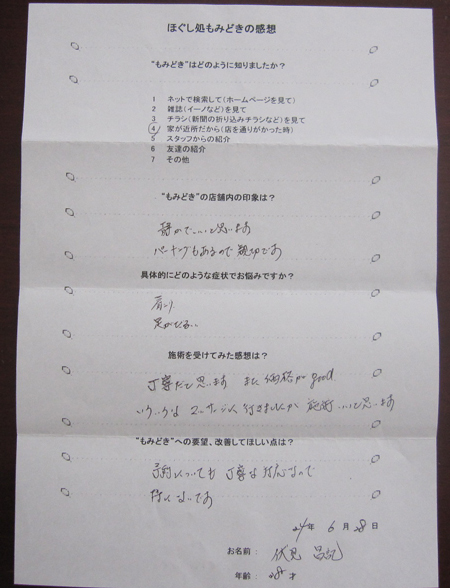 ほぐし処もみどきの感想
"もみどき"はどのように知りましたか？
1 ネットで検索して(ホームページを見て)
2 雑誌(イーノなど)を見て
3 チラシ(新聞の折り込みチラシなど)を見て
4 家が近所だから(店を通りがかった時)
5 スタッフからの紹介
6 友達の紹介
7 その他
"もみどき"の店舗内の印象は？
静かで、いいと思います
パーキングもあるので親切です
具体的にどのような症状でお悩みですか？
肩こり
足がだるい
施術を受けてみた感想は？
丁寧だと思います また価格が good
いろいろな マッサージに行きましたが 施術 いいと思います
"もみどき"への要望、改善してほしい点は？
予約についても 丁寧な対応なので
特にないです
24年 6月 28日
お名前：
年齢： 28才